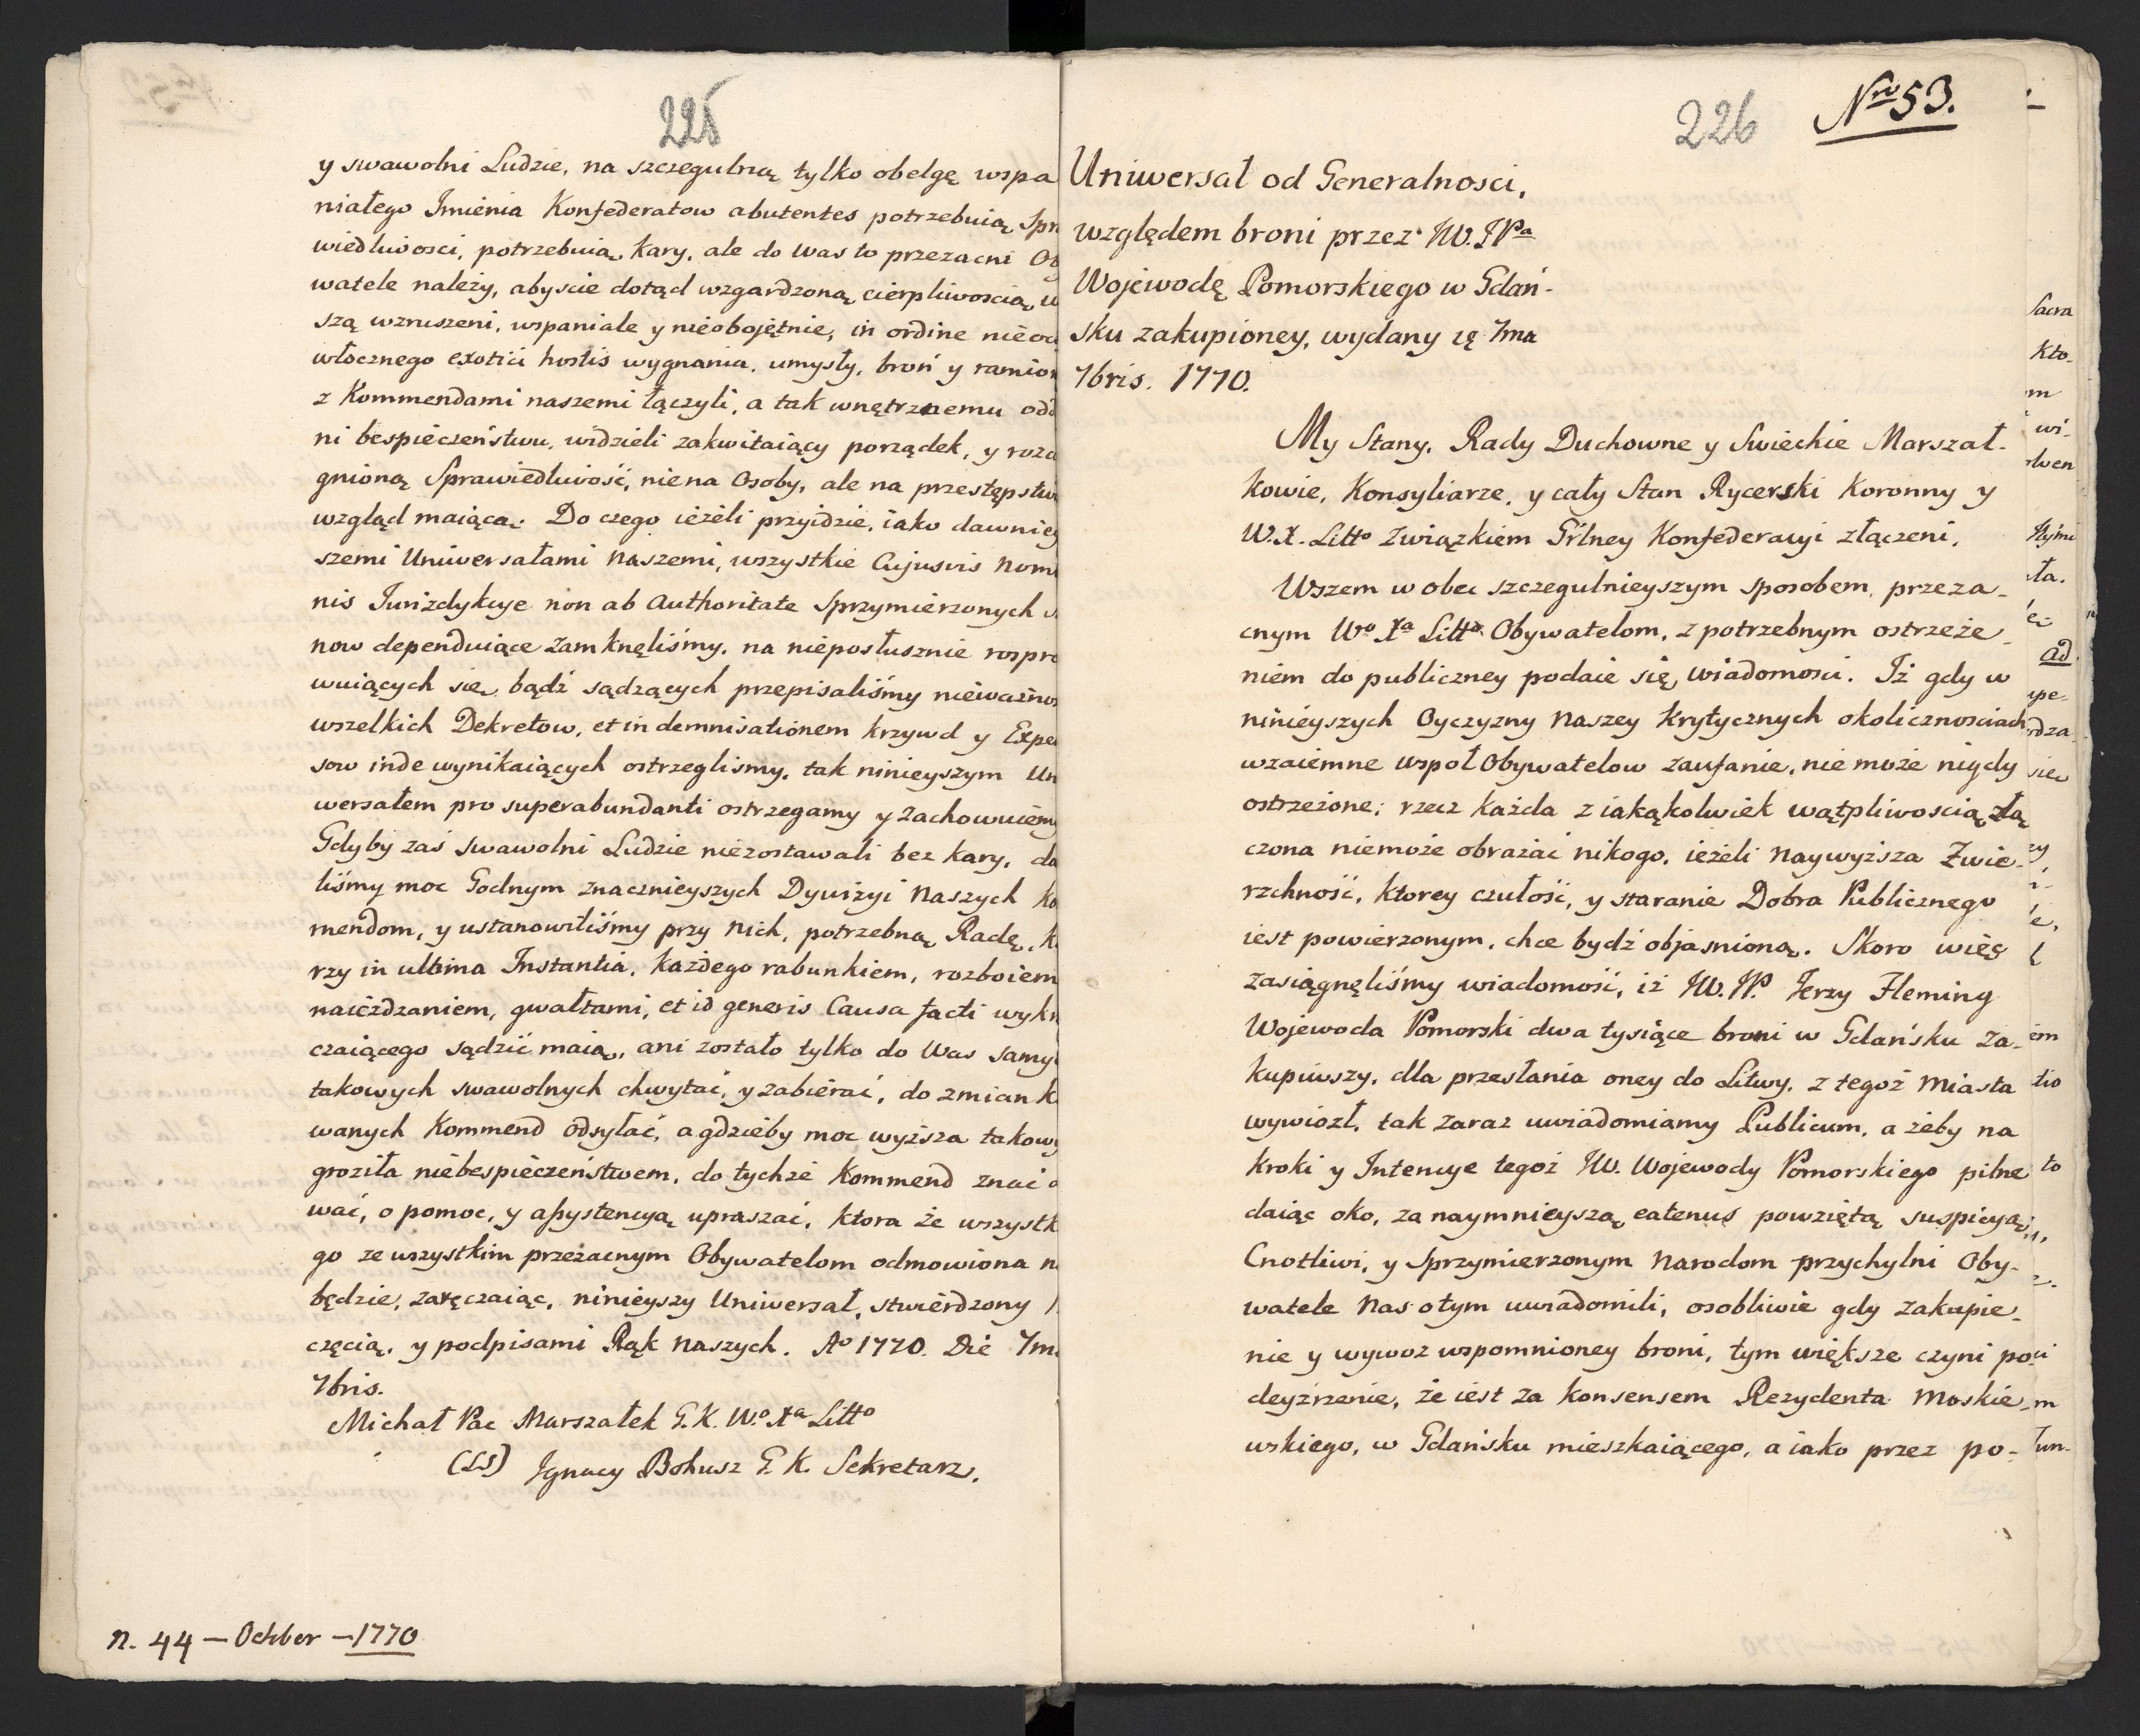 225
y swawolni Ludzie, na szczegulną tylko obelgę wspa
niałego Imienia Konfederatow abutentes potrzebuią Spr
wiedliwosci, potrzebuią Kary, ale do Was to przezacni Ob
watele należy, abyscie dotąd wzgardzoną cierpliwoscią, w
szą wzruszeni, wspaniale y nieobojętnie, in ordine nieod
włocznego exotici hostis wygnania, umysły, broń y ramion
z Kommendami naszemi łączyli, a tak wnętrznemu odd
ni bespieczeństwu, widzieli zakwitaiący porządek, y roza
gnioną Sprawiedliwość, nie na Osoby, ale na przestępstw
wzgląd maiącą. Do czego ieżeli przyidzie, iako dawniey
szemi Uniwersałami Naszemi, wszystkie Cujusvis Nomi
nis Jurizdykcye non ab Authoritate Sprzymierzonych s
now dependuiące zamknęliśmy, na nieposłusznie rozpra
wuiących się, bądź sądzących przepisaliśmy nieważnos
wszelkich Dekretow, et in demnisationem krzywd y Expe
sow inde wynikaiących ostrzeglismy, tak ninieyszym Un
wersałem pro superabundanti ostrzegamy y zachowuiemy
Gdyby zaś swawolni Ludzie niezostawali bez kary, da
liśmy moc Godnym znacznieyszych Dywizyi Naszych Ko
mendom, y ustanowiliśmy przy Nich, potrzebną Radę, k
rzy in ultima Instantia, każdego rabunkiem, rozboiem
naieżdzaniem, gwałtami, et id generis Causa facti wykr
czaiącego sądzić maią, ani zostało tylko do Was samy
takowych swawolnych chwytać, y zabierać, do zmianko
wanych Kommend odsyłać, a gdzieby moc wyższa takowy
groziła niebespieczeństwem, do tychże Kommend znać d
wać, o pomoc, y assystencyą upraszać, ktora że wszystk
go ze wszystkim przezacnym Obywatelom odmowiona n
będzie, zaręczaiąc, ninieyszy Uniwersał, stwierdzony
częcią, y podpisami Rąk Naszych. Ao 1770. Die 7ma
7bris.
Michał Pac Marszałek G. K. W.o Xa Litto
(LS) Ignacy Bohusz G. K. Sekretarz.
n. 44 — October — 1770
226
Nro 53.
Uniwersał od Generalnosci,
względem broni przez JW. JPa
Wojewodę Pomorskiego w Gdań-
sku zakupioney, wydany 7ma
7bris. 1770.
My Stany, Rady Duchowne y Swieckie Marszał-
kowie, Konsyliarze, y cały Stan Rycerski Koronny y
W. X. Litto Związkiem Grlney Konfederacyi złączeni,
Wszem w obec szczegulnieyszym sposobem, przeza-
cnym Wo Xa Litto Obywatelom, z potrzebnym ostrzeże-
niem do publiczney podaie się wiadomosci. Iż gdy w
ninieyszych Oyczyzny Naszey krytycznych okolicznosciach
wzaiemne wspoł Obywatelow zaufanie, nie może nigdy
ostrzeżone; rzecz każda z iakąkolwiek wątpliwoscią złą
czona niemoże obrażać nikogo, ieżeli Naywyższa Zwie-
rzchność, ktorey czułość, y staranie Dobra Publicznego
iest powierzonym, chce bydź objasnioną. Skoro więc
zasiągnęliśmy wiadomość, iż JW. JP. Jerzy Fleming
Wojewoda Pomorski dwa tysiące broni w Gdańsku za-
kupiwszy, dla przesłania oney do Litwy, z tegoż Miasta
wywiozł, tak zaraz uwiadomiamy Publicum, a żeby na
kroki y Intencye tegoż JW. Wojewody Pomorskiego pilne
daiąc oko, za naymnieyszą eatenus powziętą suspicyą,
Cnotliwi, y Sprzymierzonym Narodom przychylni Oby-
watele Nas o tym uwiadomili, osobliwie gdy zakupie-
nie y wywoz wspomnioney broni, tym większe czyni po
deyźrzenie, że iest za konsensem Rezydenta Moskie-
wskiego, w Gdańsku mieszkaiącego, a iako przez po-